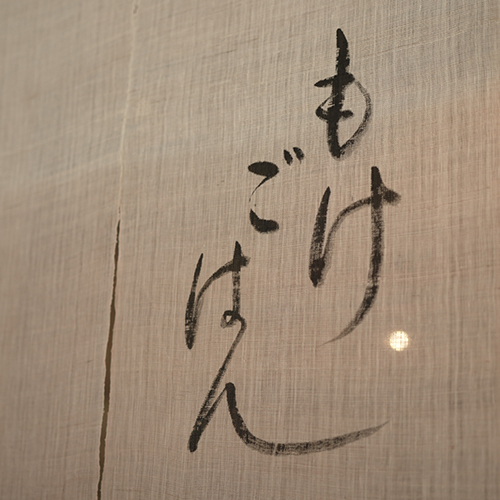 もけ
ごはん